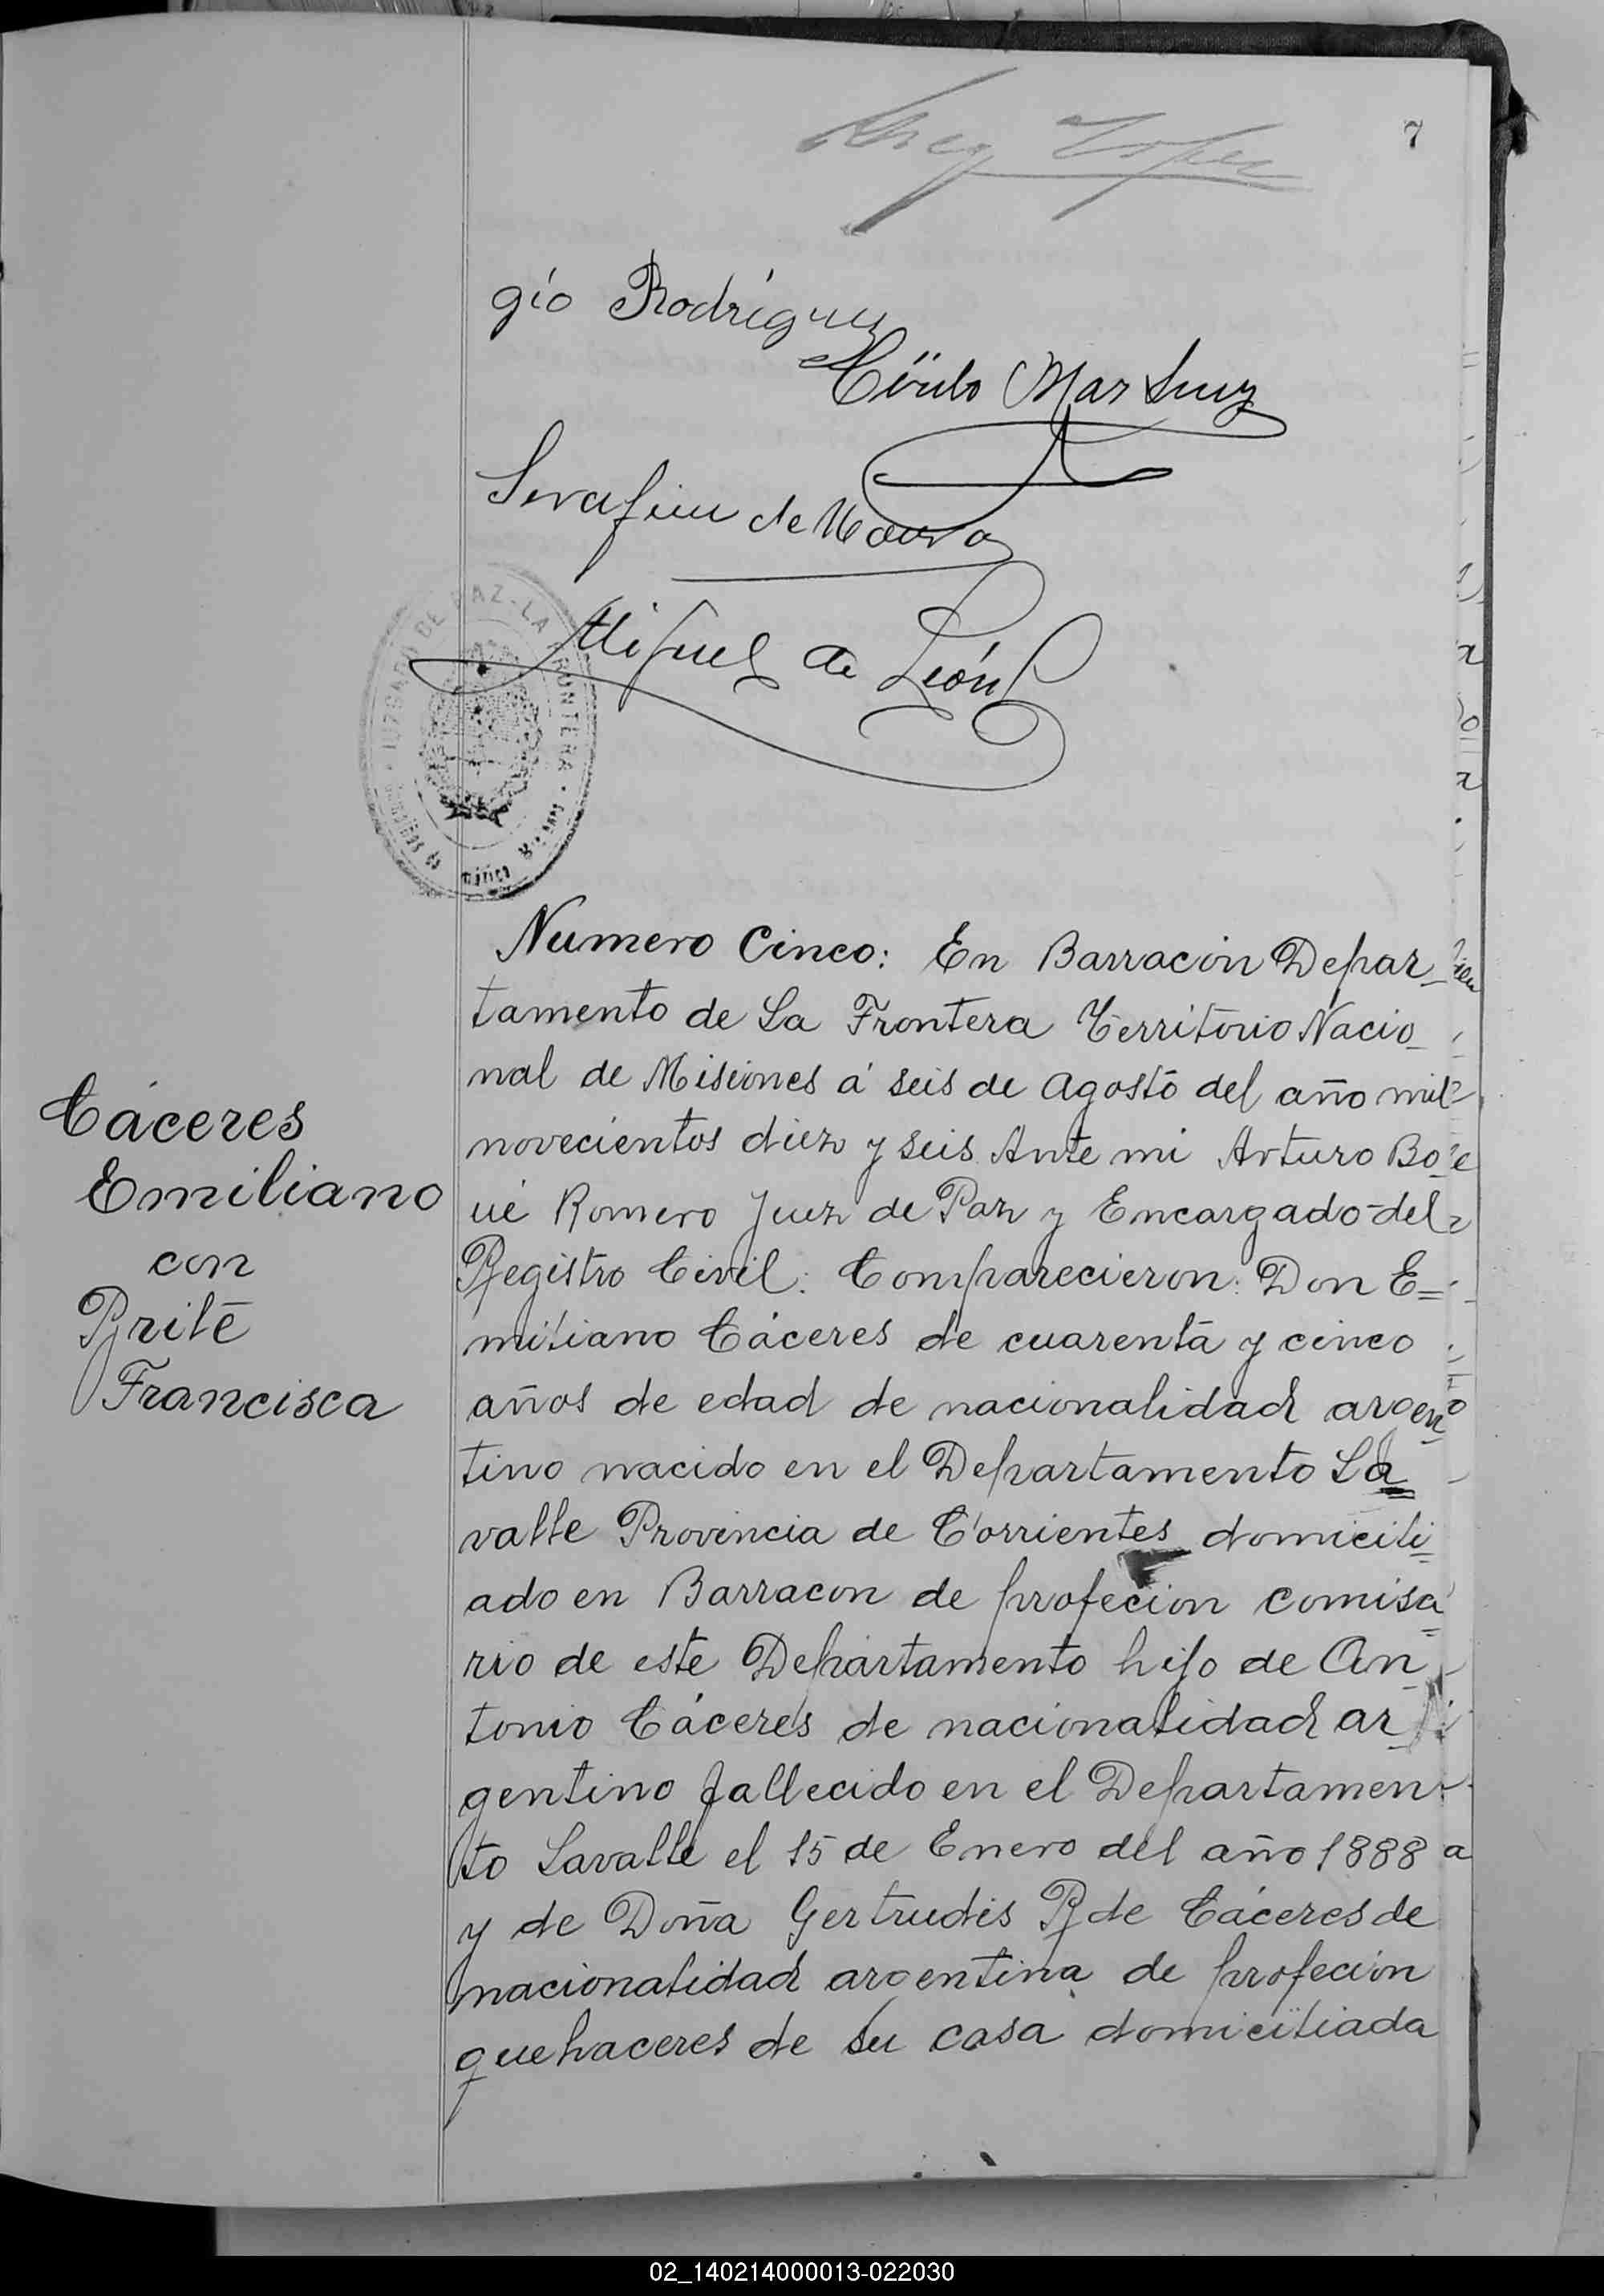 7
gío Rodríguez
Martinez
Serafin de Moura
Miguel de León
JUZGADO DE PAZ - LA FRONTERA
Numero Cinco: En Barracon Depar_
tamento de La Frontera Territorio Nacio_
nal de Misiones á seis de Agosto del año mil
novecientos diez y seis Ante mi Arturo Bo_
ué Romero Juez de Paz y Encargado del
Registro Civil: Comparecieron: Don E=
miliano Cáceres de cuarenta y cinco
años de edad de nacionalidad argen_
tino nacido en el Departamento La=
valle Provincia de Corrientes domicili=
ado en Barracon de profecion comisa=
rio de este Departamento hijo de An_
tonio Cáceres de nacionalidad ar_
gentino fallecido en el Departamen_
to Lavalle el 15 de Enero del año 1888
y de Doña Gertrudis R de Cáceres de
nacionalidad argentina de profecion
quehaceres de su casa domiciliada
Cáceres
Emiliano
con
Brite
Francisca
02_140214000013-022030